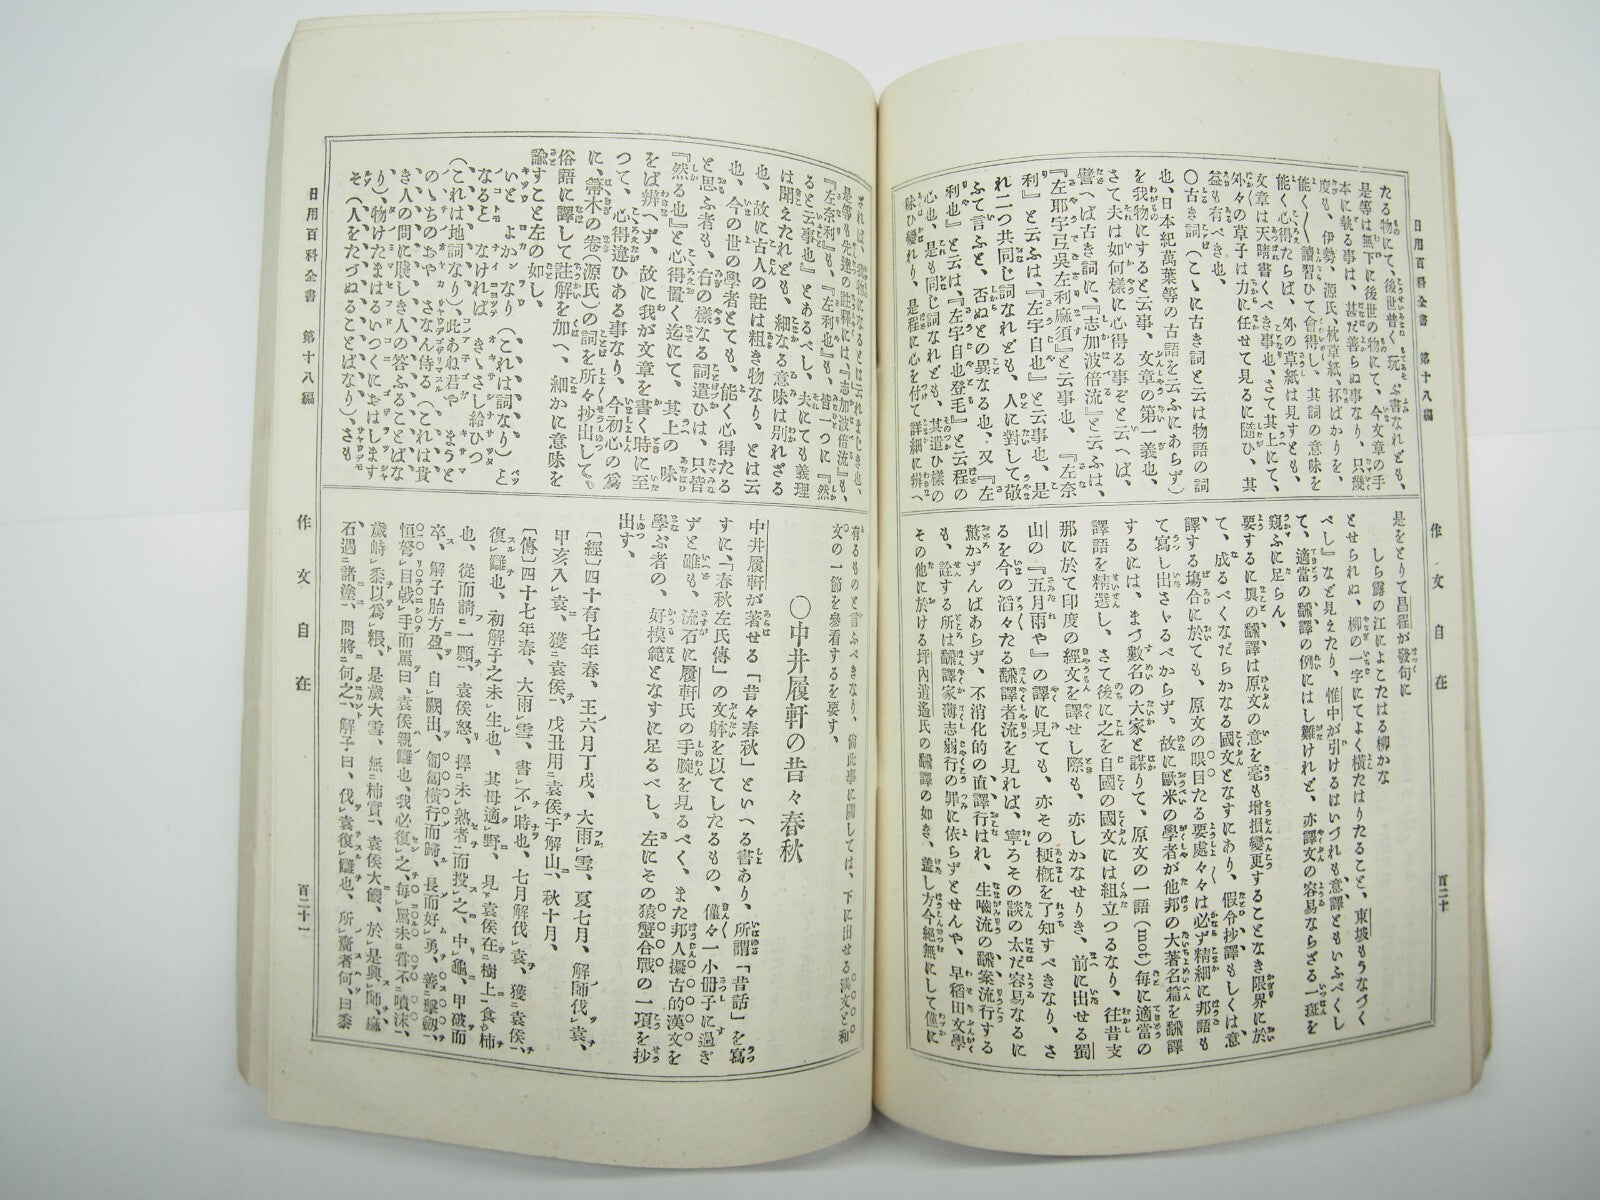 日用百科全書　第十八編
たる物にて、後世普く玩ぶ書なれども、
是等は無下に後世の物にて、今文章の手
本に執る事は、甚だ善らぬ事なり、只幾
度も、伊勢、源氏、枕草紙、抔ばかりを、
能く〳〵讀習ひて會得し、其詞の意味を
能く心得たらば、外の草紙は見ずとも、
文章は天晴書くべき事也、さて其上にて、
外々の草子は力に任せて見るに隨ひ、其
益も有べき也。
〇古き詞（こゝに古き詞と云は物語の詞
也、日本紀萬葉等の古語を云ふにあらず）
を我物にすると云事、文章の第一義也、
さて夫は如何樣に心得る事ぞと云へば、
譬へば古き詞に、『志加波倍流』と云ふは、
『左耶宇弖吳左利麻須』と云事也、『左奈
利』と云ふは、『左宇自也』と云事也、是
れ二つ共同じ詞なれども、人に對して敬
ふて言ふと、否ぬとの異なる也、又『左
利也』と云は、『左宇自也登毛』と云程の
心也、是も同じ詞なれども、其遣ひ樣の
味ひ變れり、是程に心を付て詳細に辨へ
作文自在
百二十
是をとりて昌程が發句に
しら露の江によこたはる柳かな
とせられぬ、柳の一字にてよく橫たはりたること、東坡もうなづく
べし』など見えたり、惟中が引けるはいづれも意譯ともいふべくし
て、適當の飜譯の例にはし難けれど、亦譯文の容易ならざる一斑を
窺ふに足らん、
要するに眞の飜譯は原文の意を毫も增損變更することなき限界に於
て、成るべくなだらかなる國文となすにあり、假令抄譯もしくは意
譯する塲合に於ても、原文の眼目たる要處々々は必ず精細に邦語も
て寫し出さゞるべからず、故に歐米の學者が他邦の大著名篇を飜譯
するには、まづ數名の大家と謀りて、原文の一語(mot)毎に適當の
譯語を精選し、さて後に之を自國の國文には組立つるなり、往昔支
那に於て印度の經文を譯せし際も、亦しかなせりき、前に出せる蜀
山の『五月雨や』の譯に見ても、亦その梗槪を了知すべきなり、さ
るを今の滔々たる飜譯者流を見れば、寧ろその談の太だ容易なるに
驚かずんばあらず、不消化的の直譯行はれ、生嚙流の飜案流行する
も、詮する所は飜譯家薄志弱行の罪に依らずとせんや、早稻田文學
その他に於ける坪內逍遙氏の飜譯の如き、盖し方今絕無にして僅に
日用百科全書　第十八編
是等も先達の註釋には、『志加波倍流』も、
『左奈利』も、『左利也』も、皆一つに『然
ると云事也』とあるべし、夫にても義理
は聞えたれども、細なる意味は別れざる
也、故に古人の註は粗き物なり、とは云
也、今の世の學者とても、能く心得たる
と思ふ者も、右の樣なる詞遣ひは、只皆
『然る也』と心得置く迄にて、其上の味
をば辨へず、故に我が文章を書く時に至
つて、心得違ひある事なり、今初心の爲
に、箒木の卷（源氏）の詞を所々抄出しても
俗語に譯して註解を加へ、細かに意味を
諭すこと左の如し。
いと よかなり（これは詞なり）と
なると なければ きゝさし給ひつ
（これは地詞なり）、此あね君や まうと
のゝちのおや さなん侍る（これは貴
き人の問に賤しき人の答ふることばな
り）、物けたまはるいづくにおはします
そ（人をたづぬることばなり）、さも
作文自在
百二十一
有るものと言ふべきなり、倘此事に關しては、下に出せる漢文と和
文の一節を參看するを要す、
〇中井履軒の昔々春秋
中井履軒が著せる『昔々春秋』といへる書あり、所謂『昔話』を寫
すに、『春秋左氏傳』の文躰を以てしたるもの、僅々一小册子に過ぎ
ずと雖も、流石に履軒氏の手腕を見るべく、また邦人擬古的漢文を
學ぶ者の、好模範となすに足るべし、左にその猿蟹合戰の一項を抄
出す。
〔經〕四十有七年春、王六月丁戌、大雨雪、夏七月、解師伐袁、
甲亥入袁、獲袁侯、戊丑用袁侯于解山、秋十月、
〔傳〕四十七年春、大雨雪、書不時也、七月解伐袁、獲袁侯、
復讎也、初解子之未生也、其母適野、見袁侯在樹上食柿
也、從而請一顆、袁侯怒、擇未熟者而投之、中龜、甲破而
卒、解子胎方盈、自闢出、匍匐橫行而歸、長而好勇、善擊劒、
恒弩目戟手而罵曰、袁侯親讎也、我必復之、每罵未嘗不噴沫、
歲峙黍以爲粻、是歲大雪、無柿實、袁侯大饑、於是興師、麻
石遇諸塗、問將何之、解子曰、伐袁復讎也、所齎者何、曰黍